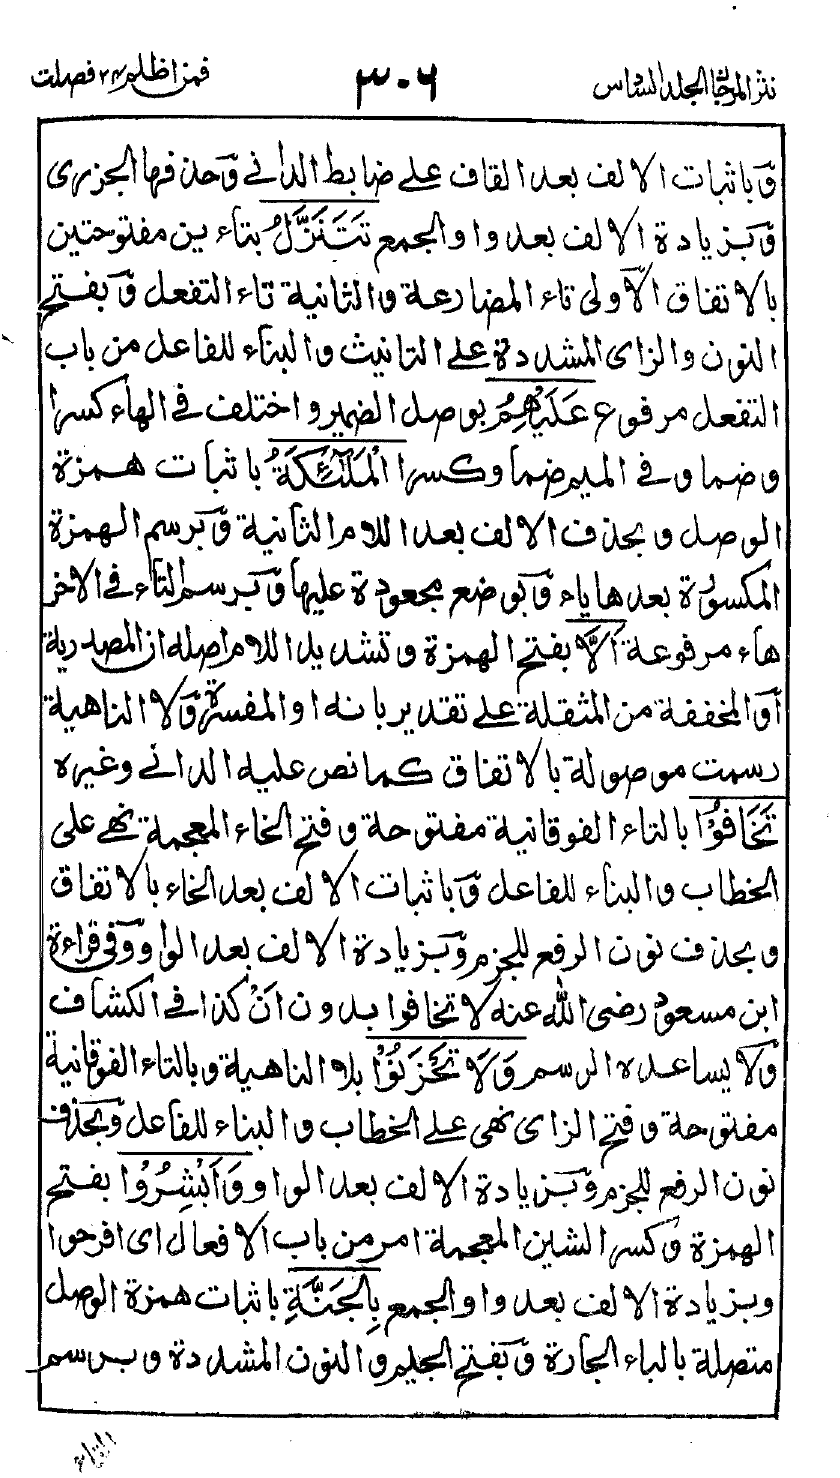 نثر المرجان الجلد السادس ٣٠٦ فمن اظلم ٢٤ فصلت
وباثبات الالف بعد القاف على ضابط الداني وحذفها الجزرى
وبزيادة الالف بعد واو الجمع تَتَنَزَّلُ بتاءين مفتوحتين
بالاتفاق الاولى تاء المضارعة والثانية تاء التفعل وبفتح
النون والزاى المشددة على التانيث والبناء للفاعل من باب
التفعل مرفوع عَلَيْهِمُ بوصل الضمير واختلف في الهاء كسرا
وضما وفي الميم ضما وكسرا الْمَلٰٓئِكَةُ باثبات همزة
الوصل وبحذف الالف بعد اللام الثانية وبرسم الهمزة
المكسورة بعدها ياء وبوضع مجعودة عليها وبرسم التاء في الاخر
هاء مرفوعة اَلَّا بفتح الهمزة وتشديد اللام اصله ان المصدرية
او المخففة من المثقلة على تقدير بانه او المفسرة ولا الناهية
رسمت موصولة بالاتفاق كما نص عليه الداني وغيره
تَخَافُوْا بالتاء الفوقانية مفتوحة وفتح الخاء المعجمة نهي على
الخطاب والبناء للفاعل وباثبات الالف بعد الخاء بالاتفاق
وبحذف نون الرفع للجزم وبزيادة الالف بعد الواو وفي قراءة
ابن مسعود رضى الله عنه لا تخافوا بدون اَنْ كذا في الكشاف
ولا يساعده الرسم وَلَا تَحْزَنُوْا بلا الناهية وبالتاء الفوقانية
مفتوحة وفتح الزاى نهى على الخطاب والبناء للفاعل وبحذف
نون الرفع للجزم وبزيادة الالف بعد الواو وَاَبْشِرُوْا بفتح
الهمزة وكسر الشين المعجمة امر من باب الافعال اى افرحوا
وبزيادة الالف بعد واو الجمع بِالْجَنَّةِ باثبات همزة الوصل
متصلة بالباء الجارة وبفتح الجيم والنون المشددة وبرسم